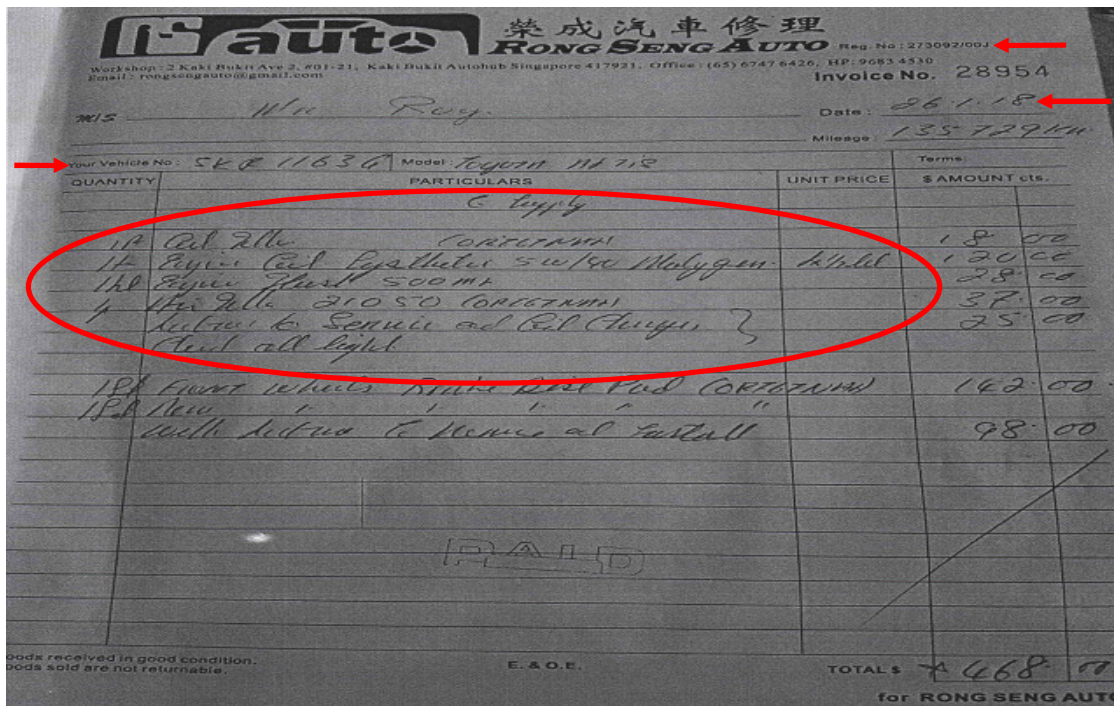 auto 榮成汽車修理
RONG SENG AUTO Reg. No : 273092/00J
Workshop : 2 Kaki Bukit Ave 2, #01-21, Kaki Bukit Autohub Singapore 417921, Office : (65) 6747 6426, HP: 9683 4530
Email : rongsengauto@gmail.com
Invoice No. 28954
M/S Roy. Date : 26.1.18
Mileage : 135729km
Your Vehicle No : SK 1163G Model : Toyota Terms:
QUANTITY PARTICULARS UNIT PRICE $ AMOUNT cts.
To supply
Oil (ORIGINAL) 18 00
Engine Oil 5W/40 Molygen 120 00
Engine Flush 500ml 28 00
21050 (ORIGINAL) 37.00
to Service and Oil Change, } 25 00
all light
1 Set Front Wheels Brake Disc Pad (ORIGINAL) 142.00
1 Set New " " " " "
With to 98.00
PAID
oods received in good condition.
oods sold are not returnable. E. & O.E. TOTAL $ 468.00
for RONG SENG AUTO